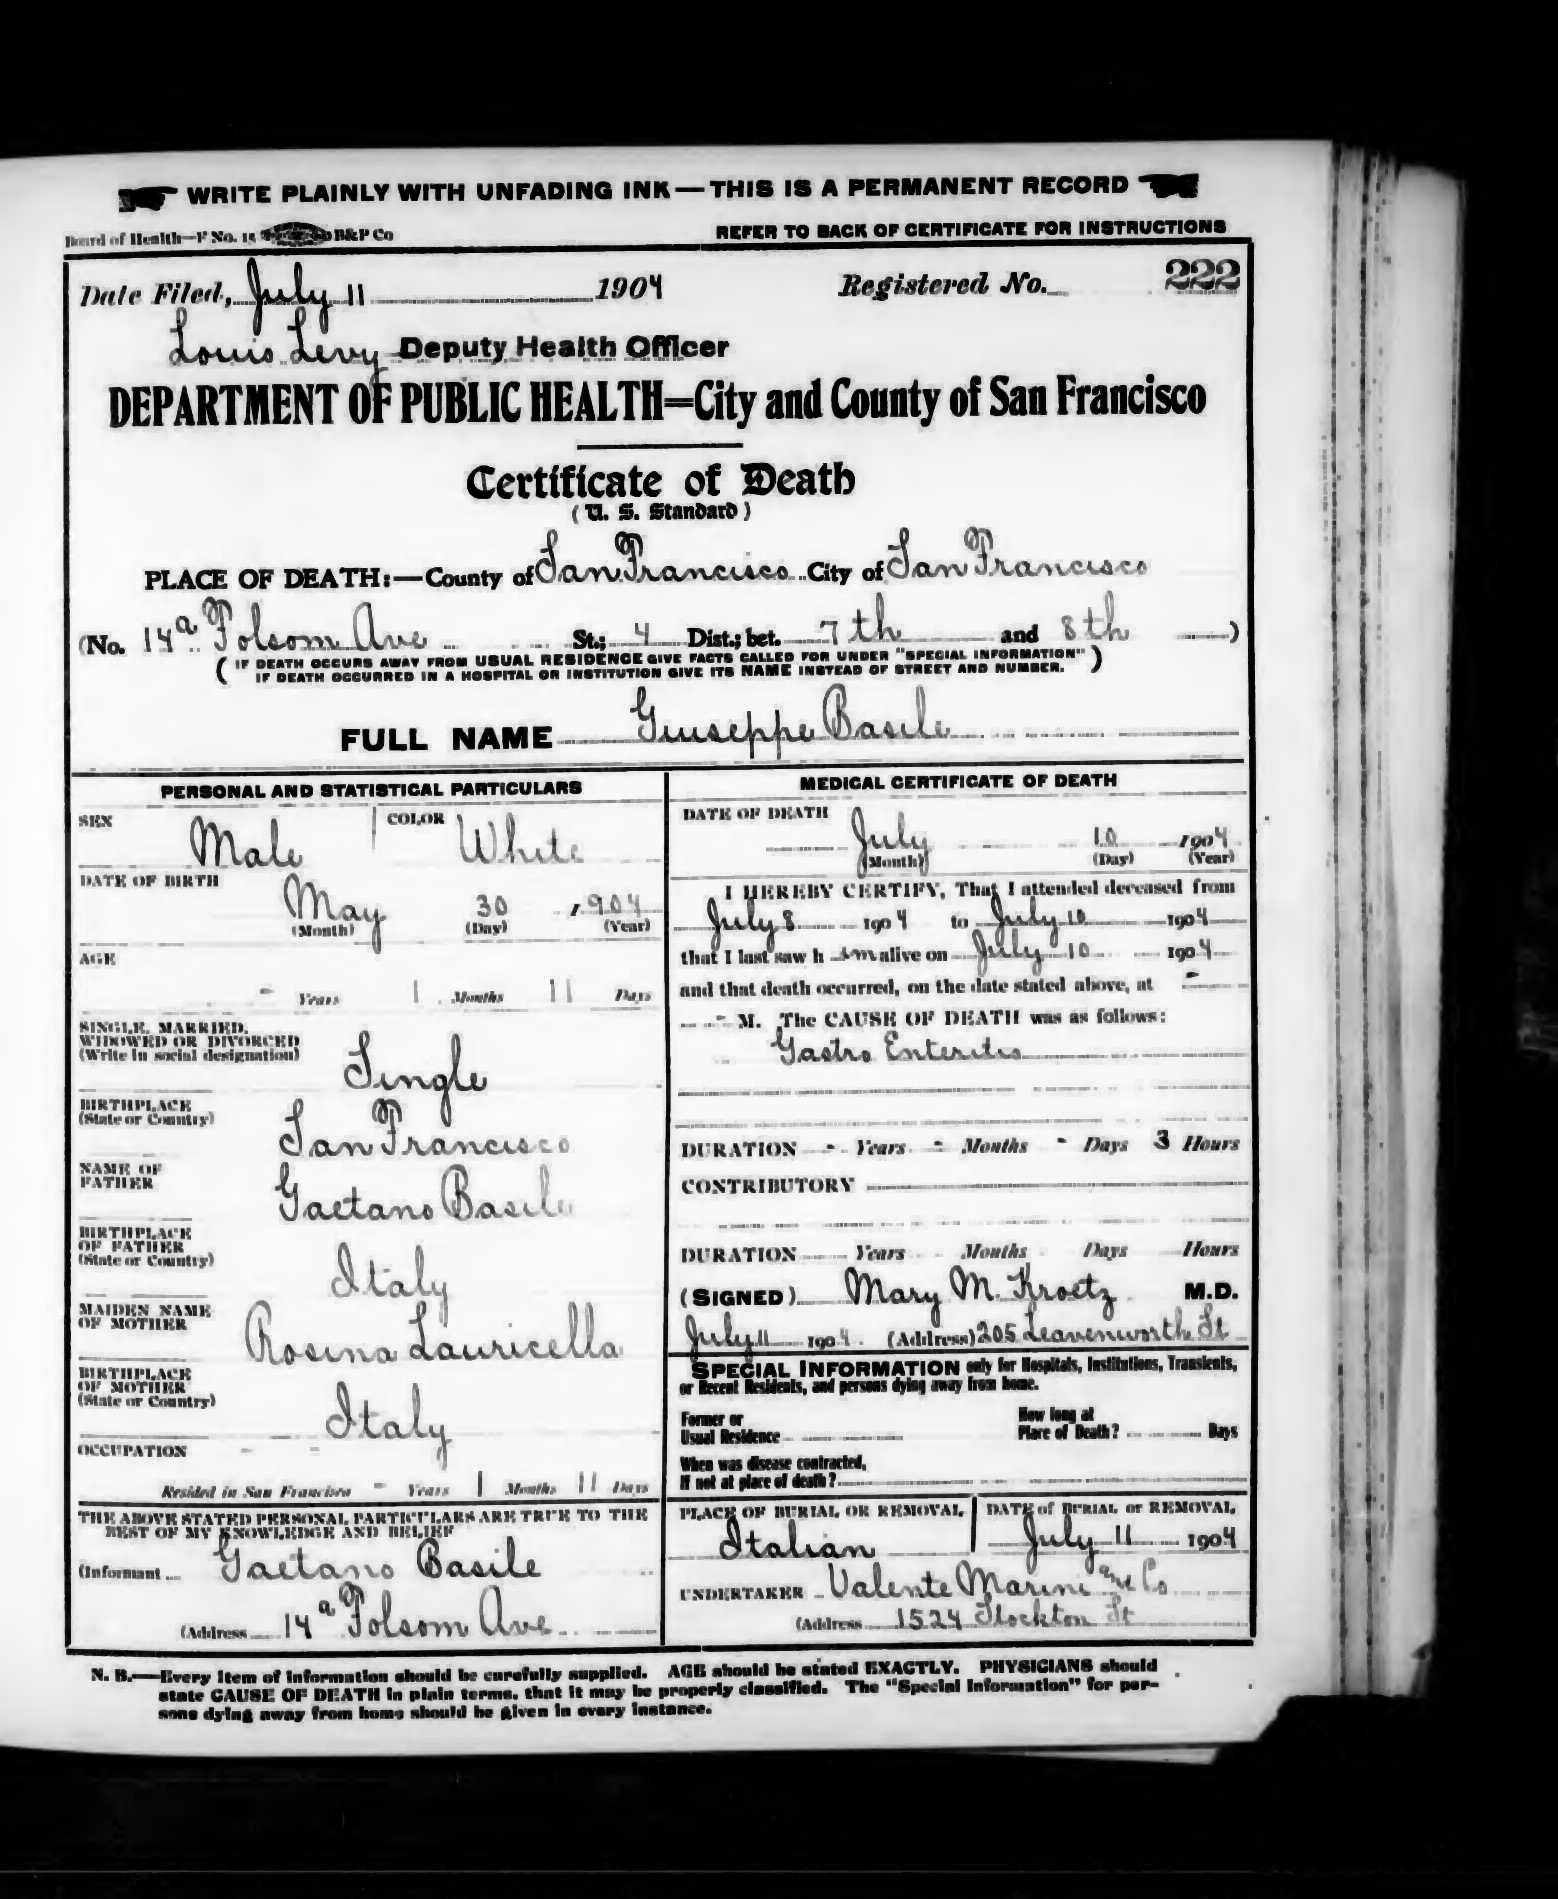 WRITE PLAINLY WITH UNFADING INK—THIS IS A PERMANENT RECORD
Board of Health—F No. 15 B&P Co
REFER TO BACK OF CERTIFICATE FOR INSTRUCTIONS
Date Filed, July 11 1904 Registered No. 222
Louis Levy Deputy Health Officer
DEPARTMENT OF PUBLIC HEALTH—City and County of San Francisco
Certificate of Death
(U. S. Standard)
PLACE OF DEATH:—County of San Francisco City of San Francisco
(No. 14a Folsom Ave St.; 4 Dist.; bet. 7th and 8th )
( IF DEATH OCCURS AWAY FROM USUAL RESIDENCE GIVE FACTS CALLED FOR UNDER "SPECIAL INFORMATION" )
IF DEATH OCCURRED IN A HOSPITAL OR INSTITUTION GIVE ITS NAME INSTEAD OF STREET AND NUMBER.
FULL NAME Giuseppe Basile
PERSONAL AND STATISTICAL PARTICULARS
SEX Male COLOR White
DATE OF BIRTH
May 30 1904
(Month) (Day) (Year)
AGE
- Years 1 Months 11 Days
SINGLE, MARRIED,
WIDOWED OR DIVORCED
(Write in social designation)
Single
BIRTHPLACE
(State or Country)
San Francisco
NAME OF
FATHER
Gaetano Basile
BIRTHPLACE
OF FATHER
(State or Country)
Italy
MAIDEN NAME
OF MOTHER
Rosina Lauricella
BIRTHPLACE
OF MOTHER
(State or Country)
Italy
OCCUPATION - -
Resided in San Francisco - Years 1 Months 11 Days
THE ABOVE STATED PERSONAL PARTICULARS ARE TRUE TO THE
BEST OF MY KNOWLEDGE AND BELIEF
(Informant Gaetano Basile
(Address 14a Folsom Ave
MEDICAL CERTIFICATE OF DEATH
DATE OF DEATH
July 10 1904
(Month) (Day) (Year)
I HEREBY CERTIFY, That I attended deceased from
July 8 1904 to July 10 1904
that I last saw h im alive on July 10 1904
and that death occurred, on the date stated above, at -
- M. The CAUSE OF DEATH was as follows:
Gastro Enteritis
DURATION - Years - Months - Days 3 Hours
CONTRIBUTORY
DURATION Years Months Days Hours
(SIGNED) Mary M. Kroetz M.D.
July 11 1904. (Address) 205 Leavenworth St
SPECIAL INFORMATION only for Hospitals, Institutions, Transients,
or Recent Residents, and persons dying away from home.
Former or
Usual Residence
How long at
Place of Death? Days
When was disease contracted,
If not at place of death?
PLACE OF BURIAL OR REMOVAL
Italian
DATE of BURIAL or REMOVAL
July 11 1904
UNDERTAKER Valente Marini and Co
(Address 1524 Stockton St
N. B.—Every item of information should be carefully supplied. AGE should be stated EXACTLY. PHYSICIANS should
state CAUSE OF DEATH in plain terms, that it may be properly classified. The "Special Information" for per-
sons dying away from home should be given in every instance.